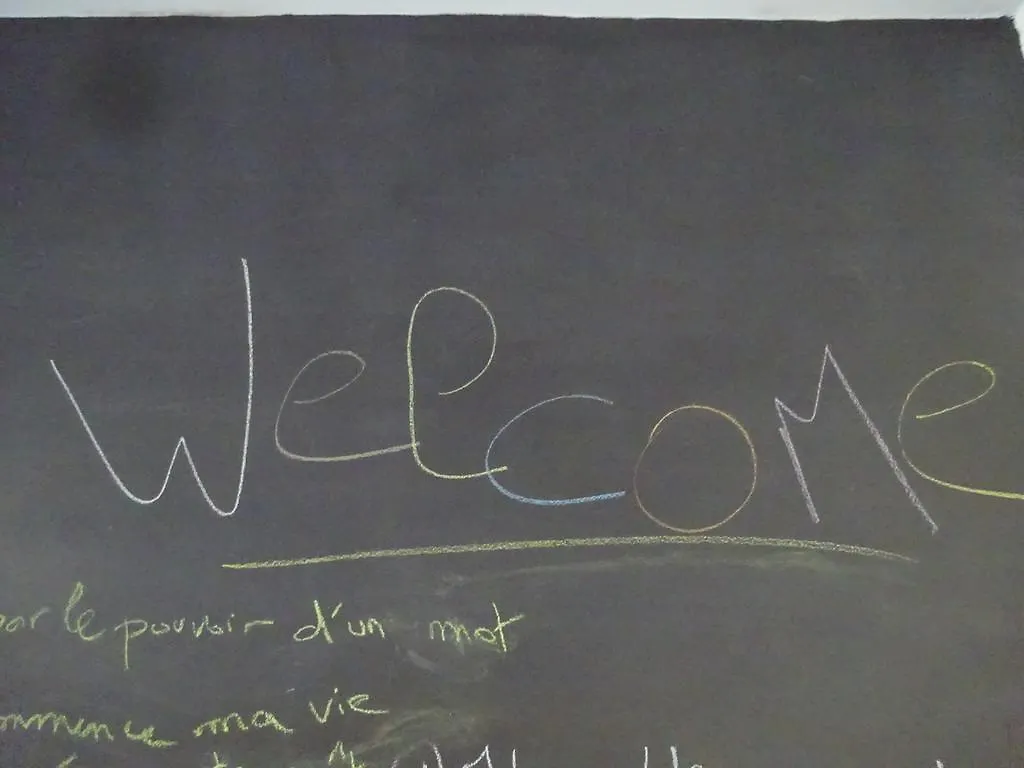 WelcoMe
par le pouvoir d'un mot
ommence ma vie